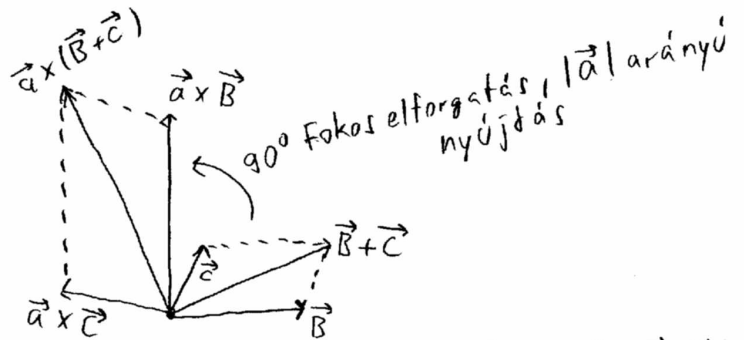 a⃗ × (B⃗ + C⃗)
a⃗ × B⃗
90° Fokos elforgatás, |a⃗| arányú
nyújtás
B⃗ + C⃗
c⃗
a⃗ × C⃗
B⃗